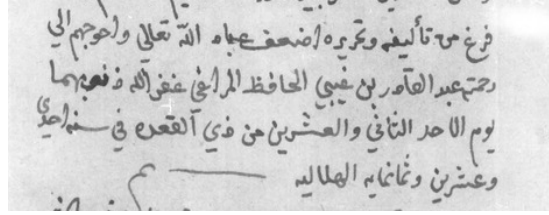 فرغ من تأليفه وتحريره اضعف عباد الله تعالي واحوجهم الي
رحمته عبد القادر بن غيبي الحافظ المراغي غفر الله ذنوبهما
يوم الاحد الثاني والعشرين من ذي القعده في سنه احدي
وعشرين وثمانمايه الهلاليه